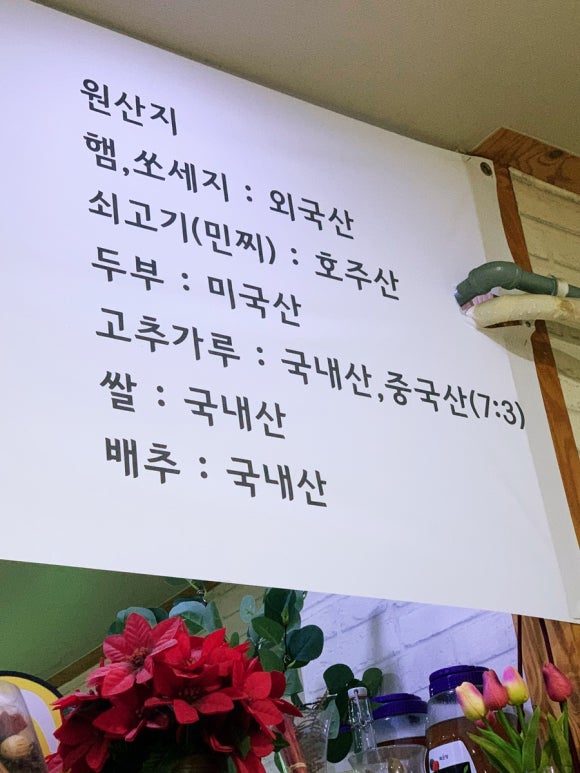 원산지
햄,쏘세지 : 외국산
쇠고기(민찌) : 호주산
두부 : 미국산
고추가루 : 국내산,중국산(7:3)
쌀 : 국내산
배추 : 국내산